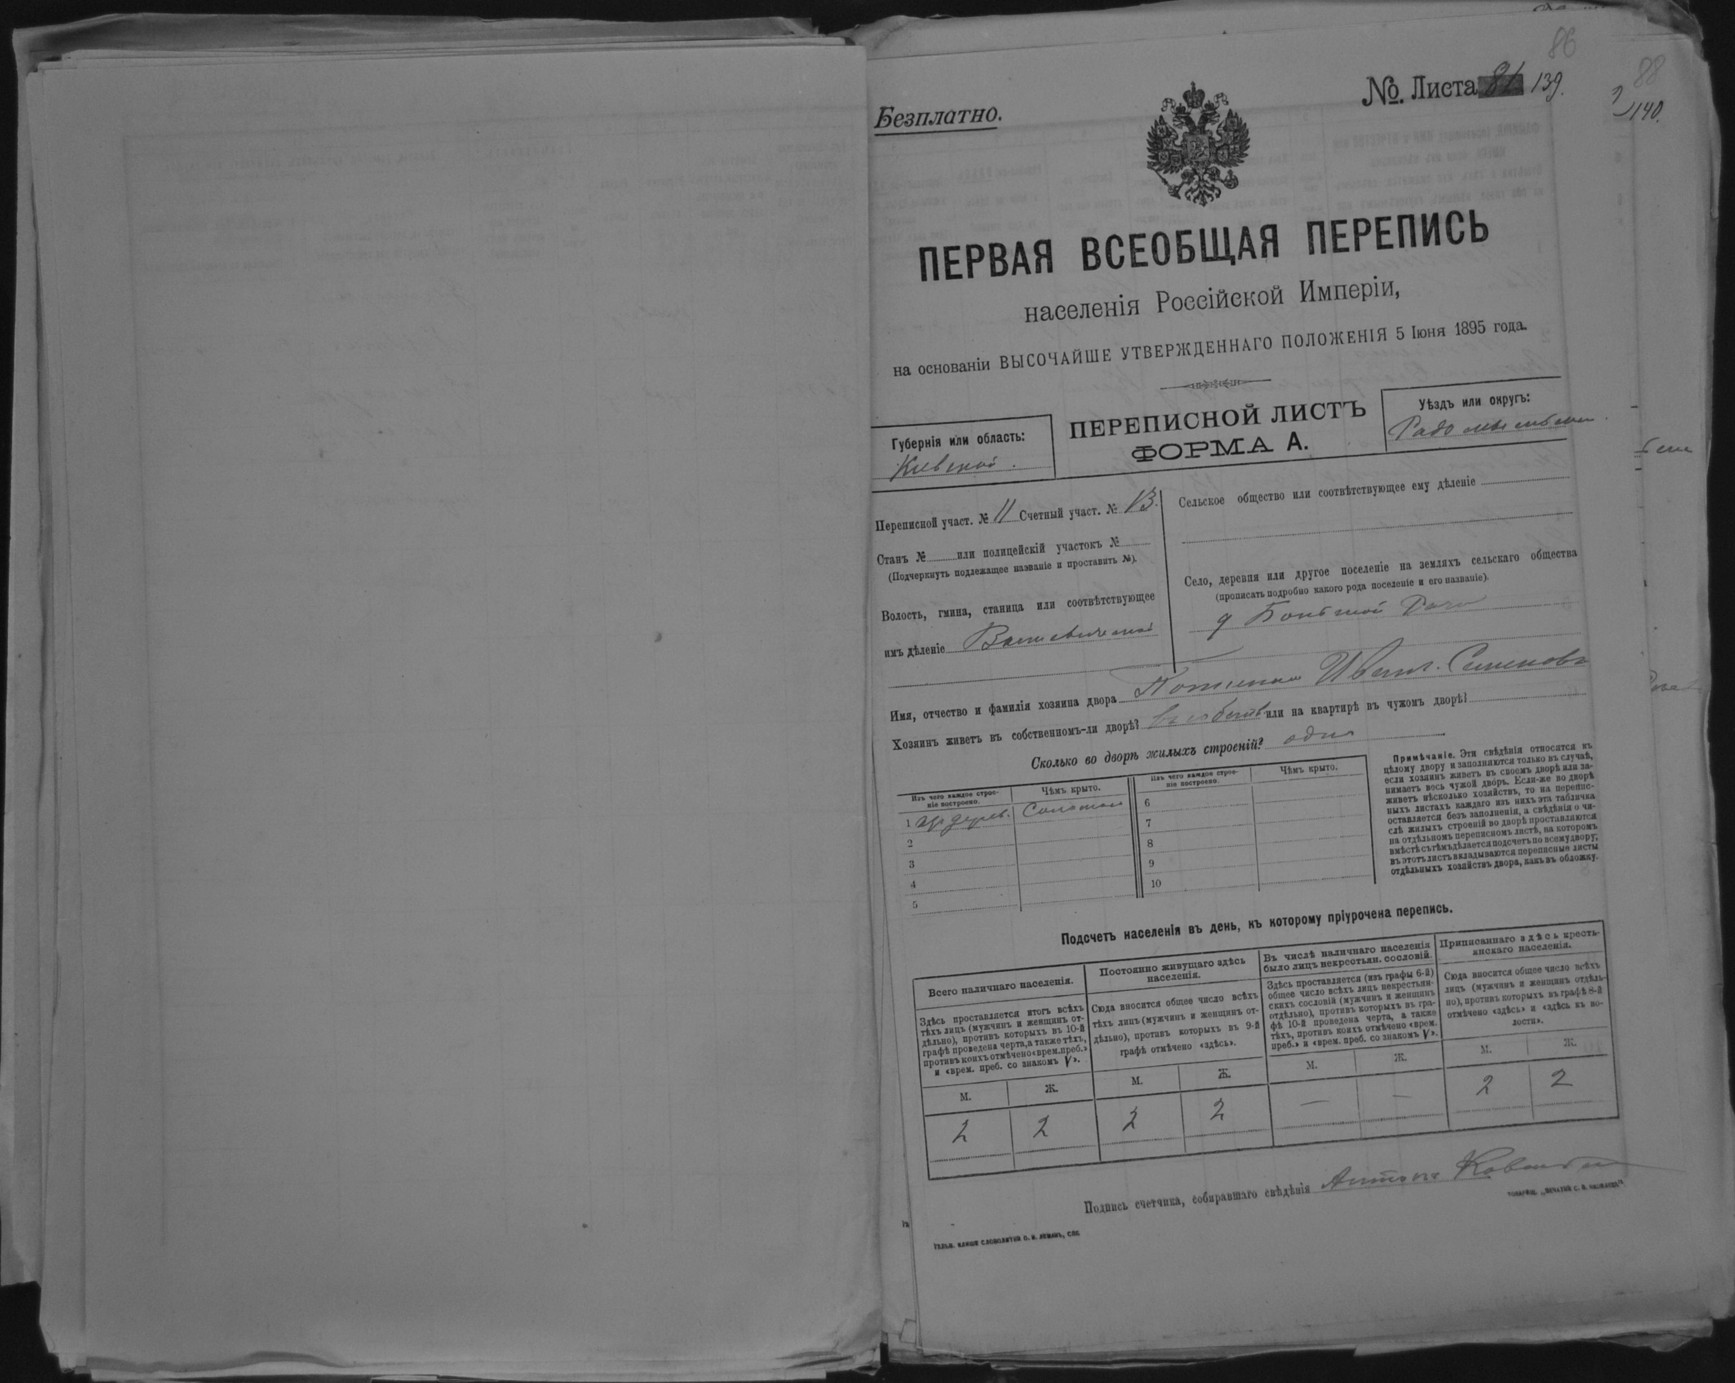 86
Безплатно.
№. Листа 81 139.
88
140.
ПЕРВАЯ ВСЕОБЩАЯ ПЕРЕПИСЬ
населенія Россійской Имперіи,
на основаніи ВЫСОЧАЙШЕ УТВЕРЖДЕННАГО ПОЛОЖЕНІЯ 5 Іюня 1895 года.
Губернія или область:
Кіевской.
ПЕРЕПИСНОЙ ЛИСТЪ
ФОРМА А.
Уѣздъ или округъ:
Переписной участ. № 11 Счетный участ. №
Станъ № или полицейскій участокъ №
(Подчеркнуть подлежащее названіе и проставить №).
Волость, гмина, станица или соотвѣтствующее
имъ дѣленіе
Сельское общество или соотвѣтствующее ему дѣленіе
Село, деревня или другое поселеніе на земляхъ сельскаго общества
(прописать подробно какого рода поселеніе и его названіе).
д
Имя, отчество и фамилія хозяина двора Иванъ Семеновъ
Хозяинъ живетъ въ собственномъ-ли дворѣ? или на квартирѣ въ чужомъ дворѣ?
Сколько во дворѣ жилыхъ строеній? одно
Изъ чего каждое строе-
ніе построено.
Чѣмъ крыто.
1 изъ дерев. Соломою
2
3
4
5
Изъ чего каждое строе-
ніе построено.
Чѣмъ крыто.
6
7
8
9
10
Примѣчаніе. Эти свѣдѣнія относятся къ
цѣлому двору и заполняются только въ случаѣ,
если хозяинъ живетъ въ своемъ дворѣ или за-
нимаетъ весь чужой дворъ. Если-же во дворѣ
живетъ нѣсколько хозяйствъ, то на перепис-
ныхъ листахъ каждаго изъ нихъ эта табличка
оставляется безъ заполненія, а свѣдѣнія о чи-
слѣ жилыхъ строеній во дворѣ проставляются
на отдѣльномъ переписномъ листѣ, на которомъ
вмѣстѣ съ тѣмъ дѣлается подсчетъ по всему двору;
въ этотъ листъ вкладываются переписные листы
отдѣльныхъ хозяйствъ двора, какъ въ обложку.
Подсчетъ населенія въ день, къ которому пріурочена перепись.
Всего наличнаго населенія.
Здѣсь проставляется итогъ всѣхъ
тѣхъ лицъ (мужчинъ и женщинъ от-
дѣльно), противъ которыхъ въ 10-й
графѣ проведена черта, а также тѣхъ,
противъ коихъ отмѣчено «врем. преб.»
и «врем. преб. со знакомъ V».
М. Ж.
2 2
Постоянно живущаго здѣсь
населенія.
Сюда вносится общее число всѣхъ
тѣхъ лицъ (мужчинъ и женщинъ от-
дѣльно), противъ которыхъ въ 9-й
графѣ отмѣчено «здѣсь».
М. Ж.
2 2
Въ числѣ наличнаго населенія
было лицъ некрестьян. сословій.
Здѣсь проставляется (изъ графы 6-й)
общее число всѣхъ лицъ некрестьян-
скихъ сословій (мужчинъ и женщинъ
отдѣльно), противъ которыхъ въ гра-
фѣ 10-й проведена черта, а также
тѣхъ, противъ коихъ отмѣчено «врем.
преб.» и «врем. преб. со знакомъ V».
М. Ж.
— —
Приписаннаго здѣсь кресть-
янскаго населенія.
Сюда вносится общее число всѣхъ
лицъ (мужчинъ и женщинъ отдѣль-
но), противъ которыхъ въ графѣ 8-й
отмѣчено «здѣсь» и «здѣсь въ во-
лости».
М. Ж.
2 2
Подпись счетчика, собиравшаго свѣдѣнія Антонъ